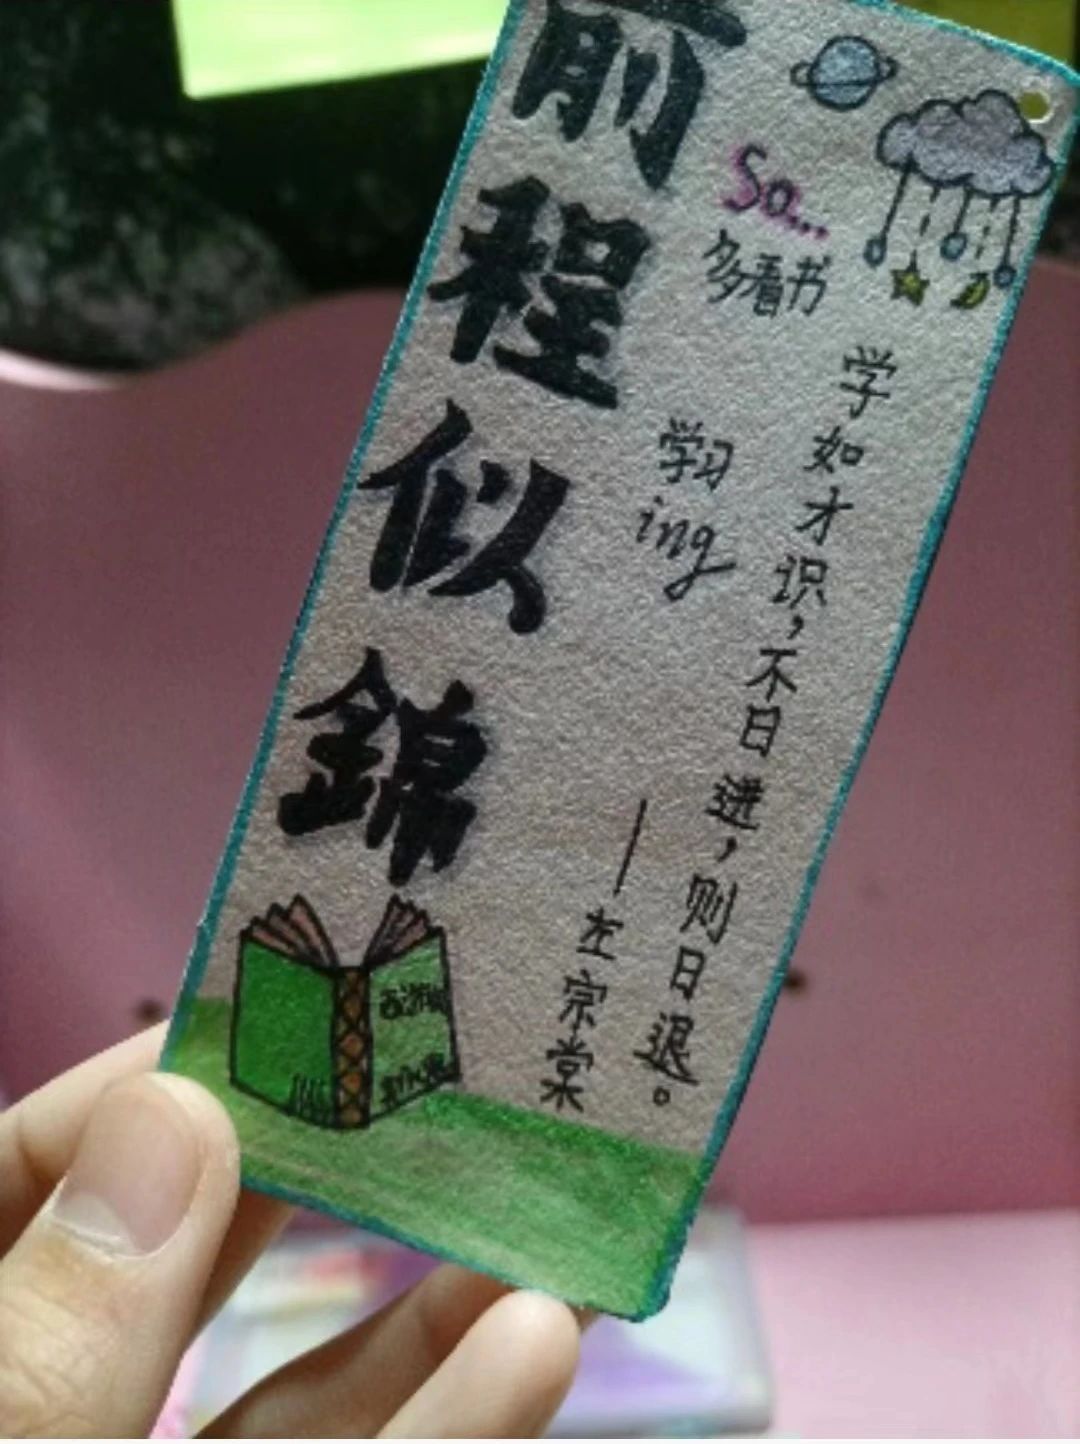 前程似錦
So...
多看书
学习
ing
学如才识，不日进，则日退。
——左宗棠
西游记